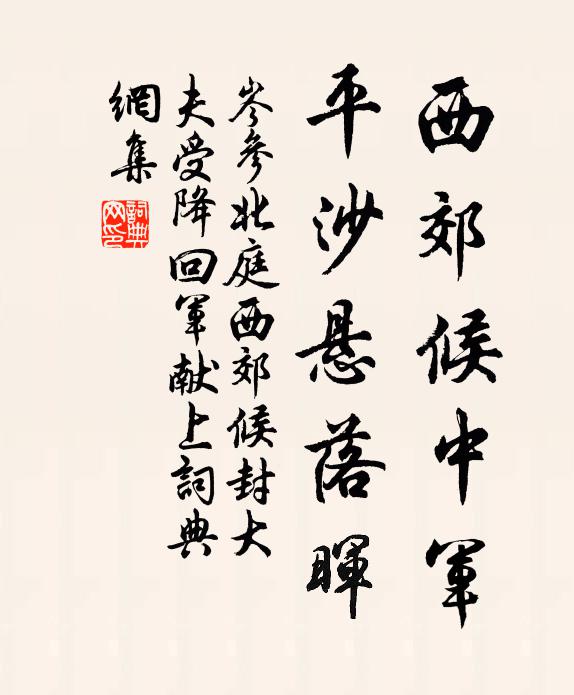 西郊候中軍
平沙悬落暉
岑參北庭西郊候封大
夫受降回軍献上詞典
網集
詞典
网印